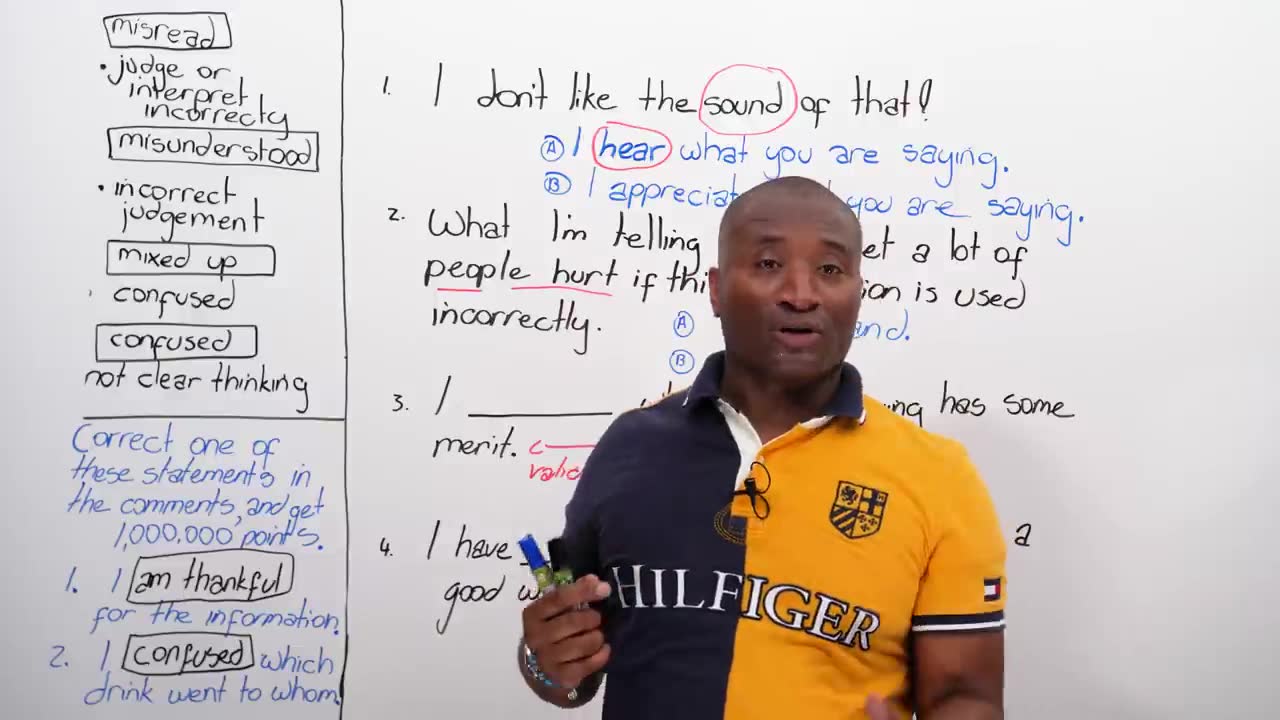 misread
• judge or
interpret
incorrecty
misunderstood
• incorrect
judgement
mixed up
confused
confused
not clear thinking
Correct one of
these statements in
the comments, and get
1,000,000 points.
1. I am thankful
for the information.
2. I confused which
drink went to whom.
1. I don't like the sound of that!
Ⓐ I hear what you are saying.
Ⓑ I appreciat you are saying.
2. What I'm telling et a lot of
people hurt if thi ion is used
incorrectly.
Ⓐ and.
Ⓑ
3. I ________ ing has some
merit.
valid
4. I have a
good w
HILFIGER